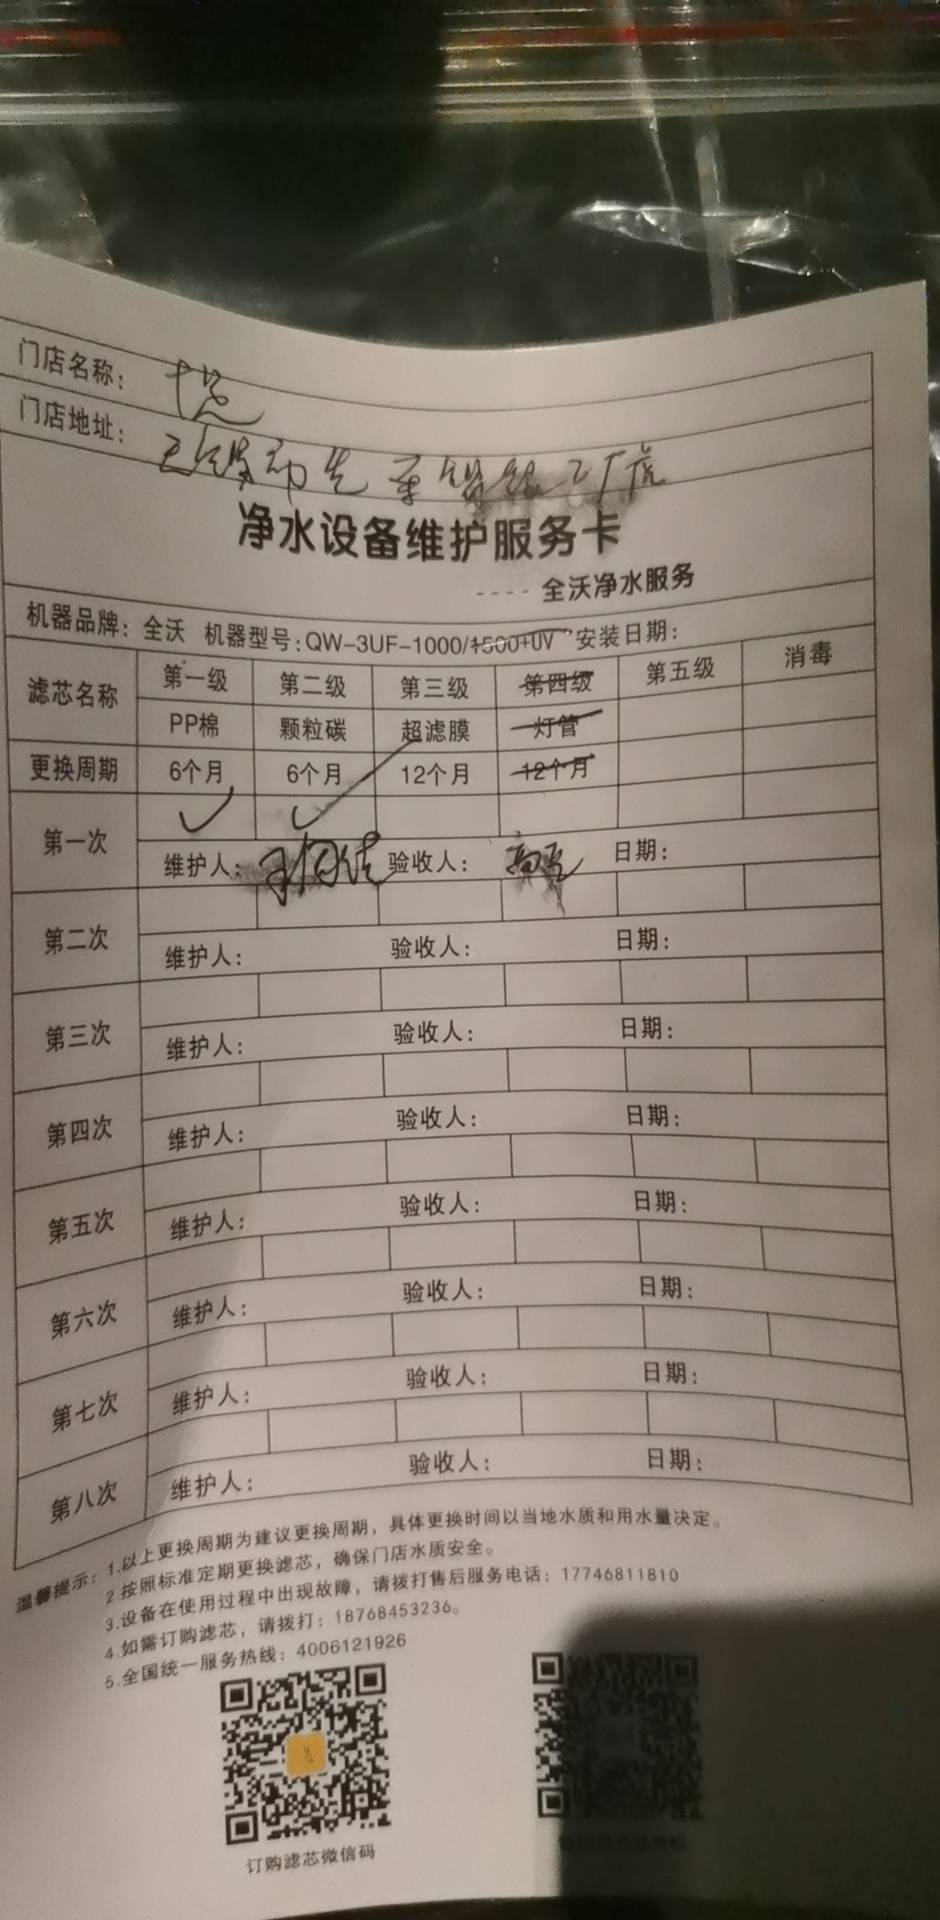 门店名称：
门店地址：
净水设备维护服务卡
---- 全沃净水服务
机器品牌：全沃 机器型号：QW-3UF-1000/1500+UV 安装日期：
滤芯名称 第一级 第二级 第三级 第四级 第五级 消毒
PP棉 颗粒碳 超滤膜 灯管
更换周期 6个月 6个月 12个月 12个月
第一次
维护人： 验收人： 日期：
第二次
维护人： 验收人： 日期：
第三次
维护人： 验收人： 日期：
第四次
维护人： 验收人： 日期：
第五次
维护人： 验收人： 日期：
第六次
维护人： 验收人： 日期：
第七次
维护人： 验收人： 日期：
第八次
维护人： 验收人： 日期：
温馨提示：1.以上更换周期为建议更换周期，具体更换时间以当地水质和用水量决定。
2.按照标准定期更换滤芯，确保门店水质安全。
3.设备在使用过程中出现故障，请拨打售后服务电话：17746811810
4.如需订购滤芯，请拨打：18768453236。
5.全国统一服务热线：4006121926
订购滤芯微信码